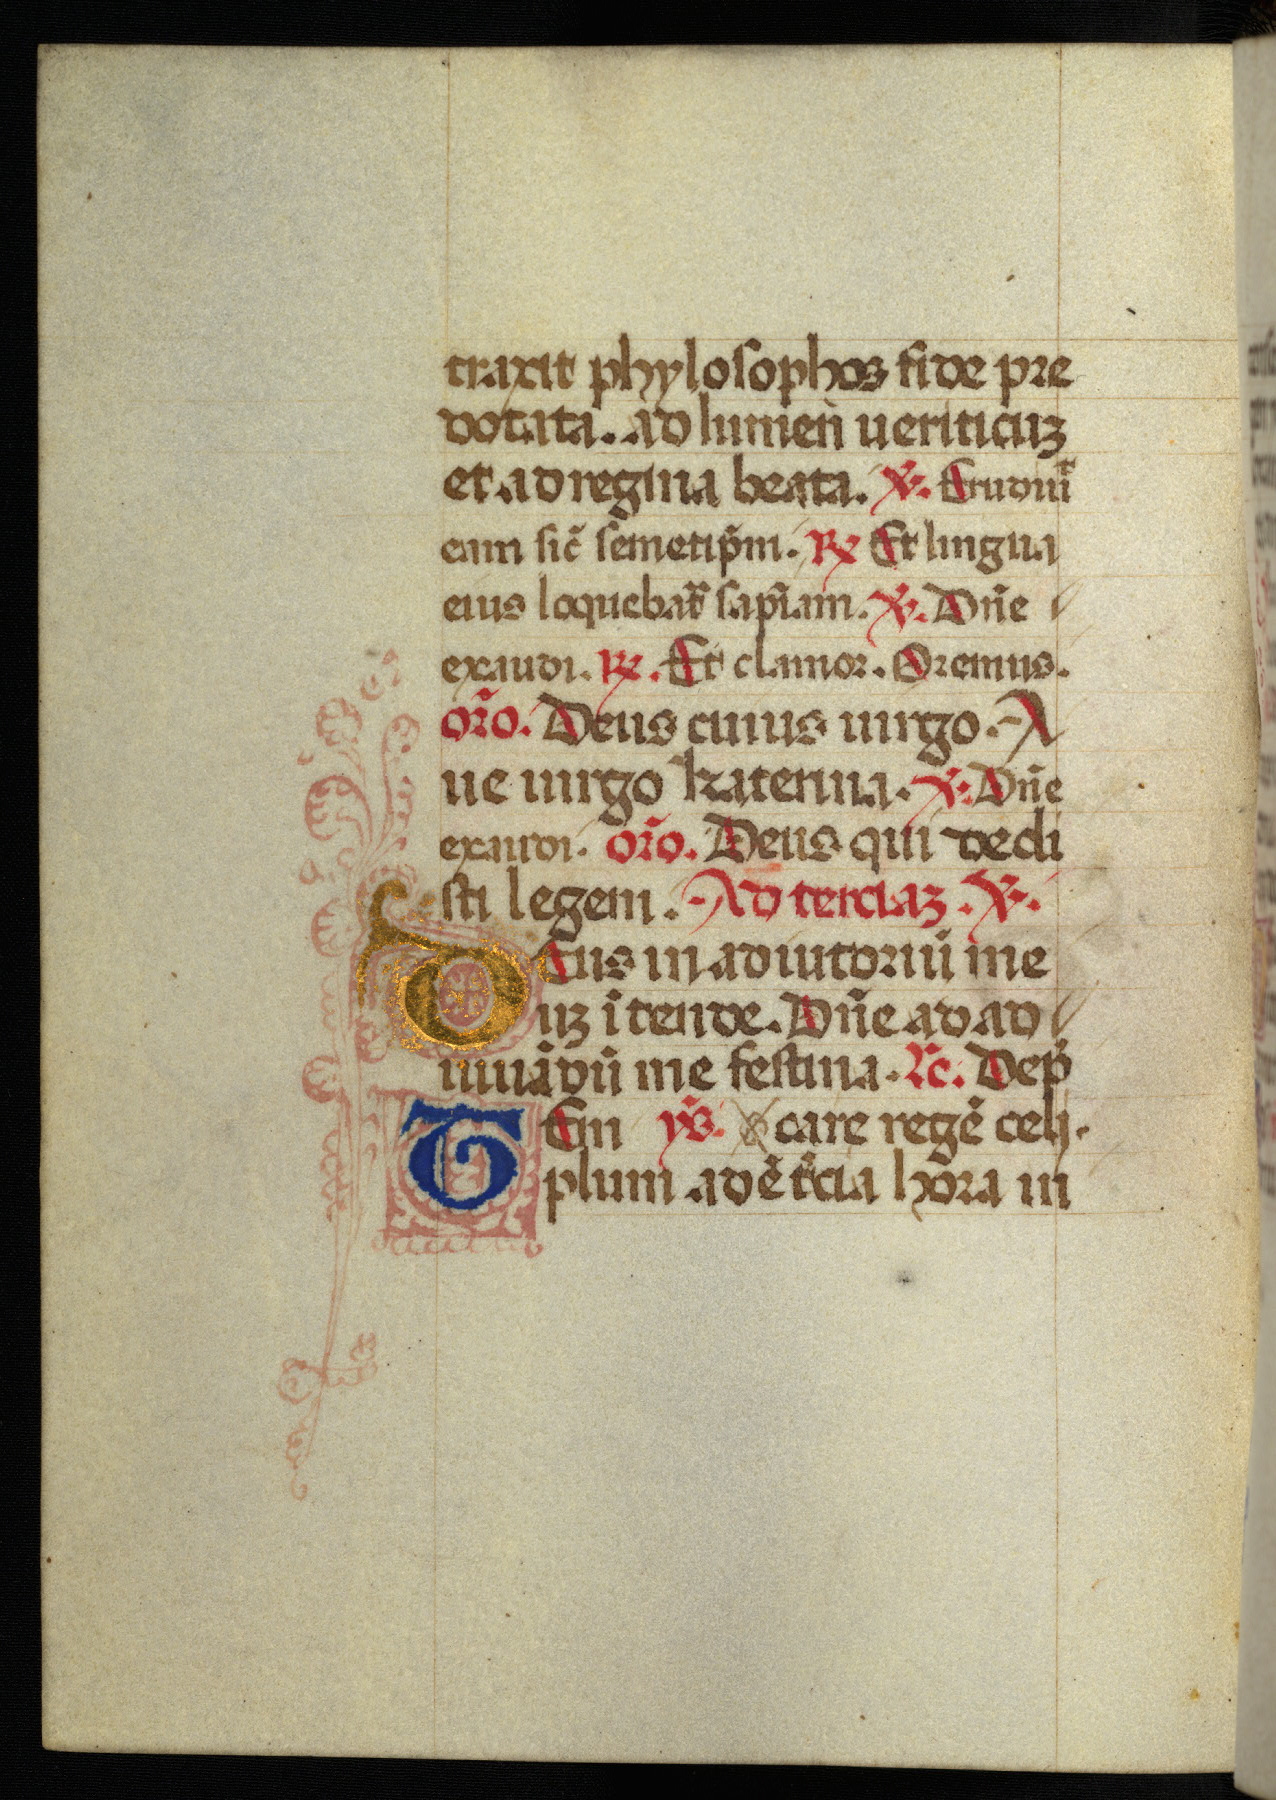 traxit phylosophoꝫ fide pre
dotata. ad lumen ueriticuꝫ
et ad regina beata. ℣. Erudiuit᷑
eam sic̄ semetip̄m. ℞ Et lingua
eius loquebat᷑ sap̄iam. ℣. Dn̄e
exaudi. ℞. Et clamor. Oremus.
or̄o. Deus cuius uirgo. A
ue uirgo katerina. ℣. Dn̄e
exaudi. or̄o. Deus qui dedi
sti legem. Ad terciaꝫ. ℣.
DEus in adiutoriū me
uꝫ ītende. Dn̄e ad ad
iuuādū me festina. Rc̄. Dep̄
TEm yꝰ. care regē celi.
plum adē tr̄cia hora in